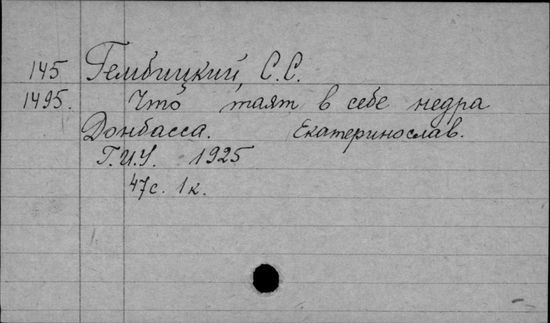 145 Гембицкий, С.С.
1495. Что таят в себе недра
Донбасса. Екатеринослав.
Г.И.У. 1925
47с. 1к.